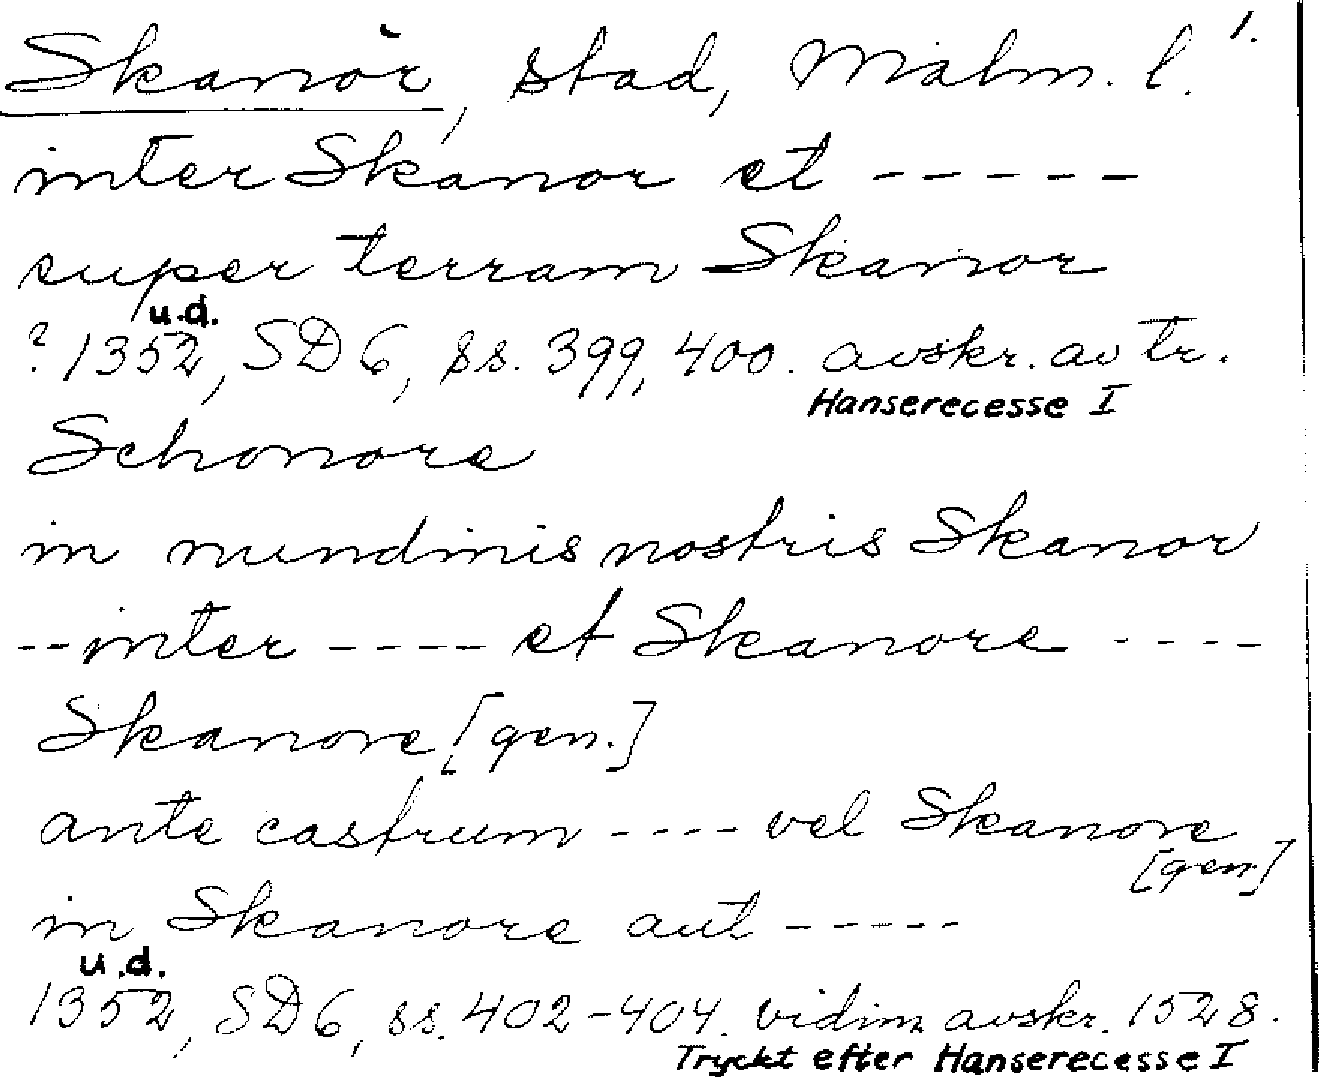 Skanör, stad, Malm. l. 1.
inter Skanor et -----
super terram Skanor
u.d.
? 1352, SD 6, ss. 399, 400. avskr. av tr.
Hanserecesse I
Schonore
in nundinis nostris Skanor
--inter ---- et Skanore ----
Skanore [gen.]
ante castrum ---- vel Skanore
[gen.]
in Skanore aut -----
u.d.
1352, SD 6, ss. 402-404. vidim. avskr. 1528.
Tryckt efter Hanserecesse I